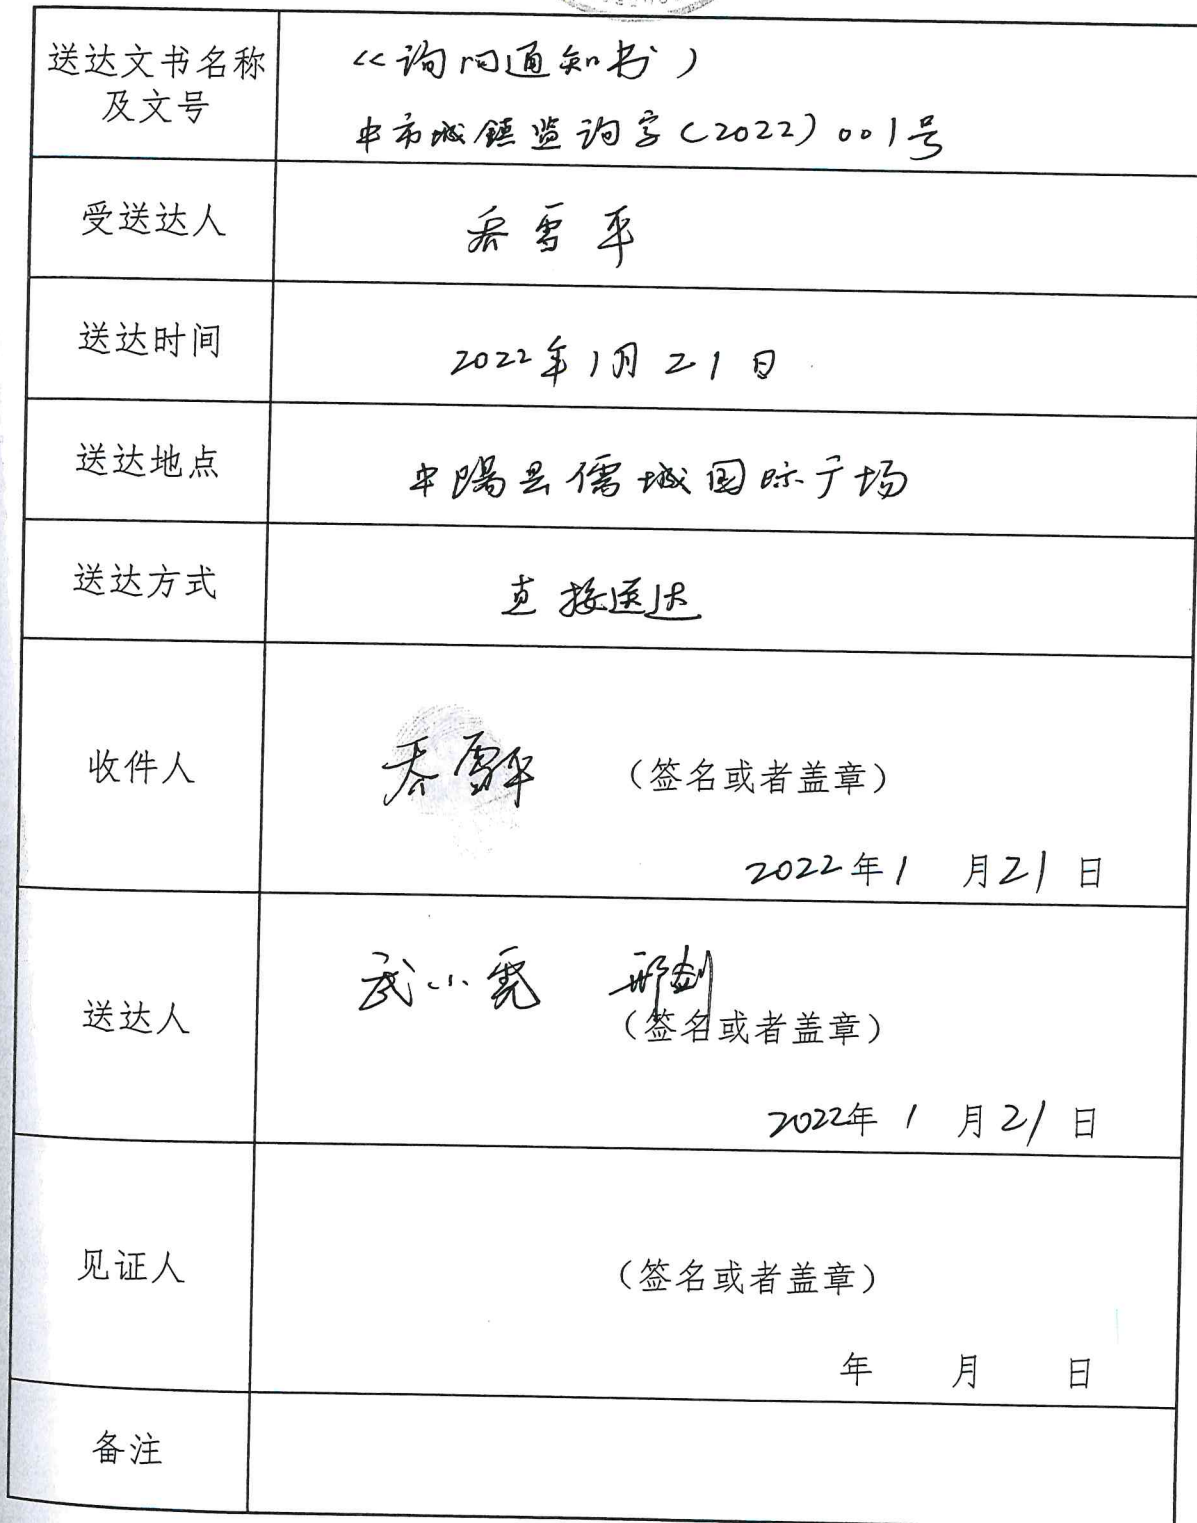 送达文书名称
及文号
《询问通知书》
中市城镇监询字(2022)001号
受送达人
乔雪平
送达时间
2022年1月21日
送达地点
中阳县儒城国际广场
送达方式
直接送达
收件人
乔雪平 (签名或者盖章)
2022年1月21日
送达人
武小霓 邢剑
(签名或者盖章)
2022年1月21日
见证人
(签名或者盖章)
年 月 日
备注